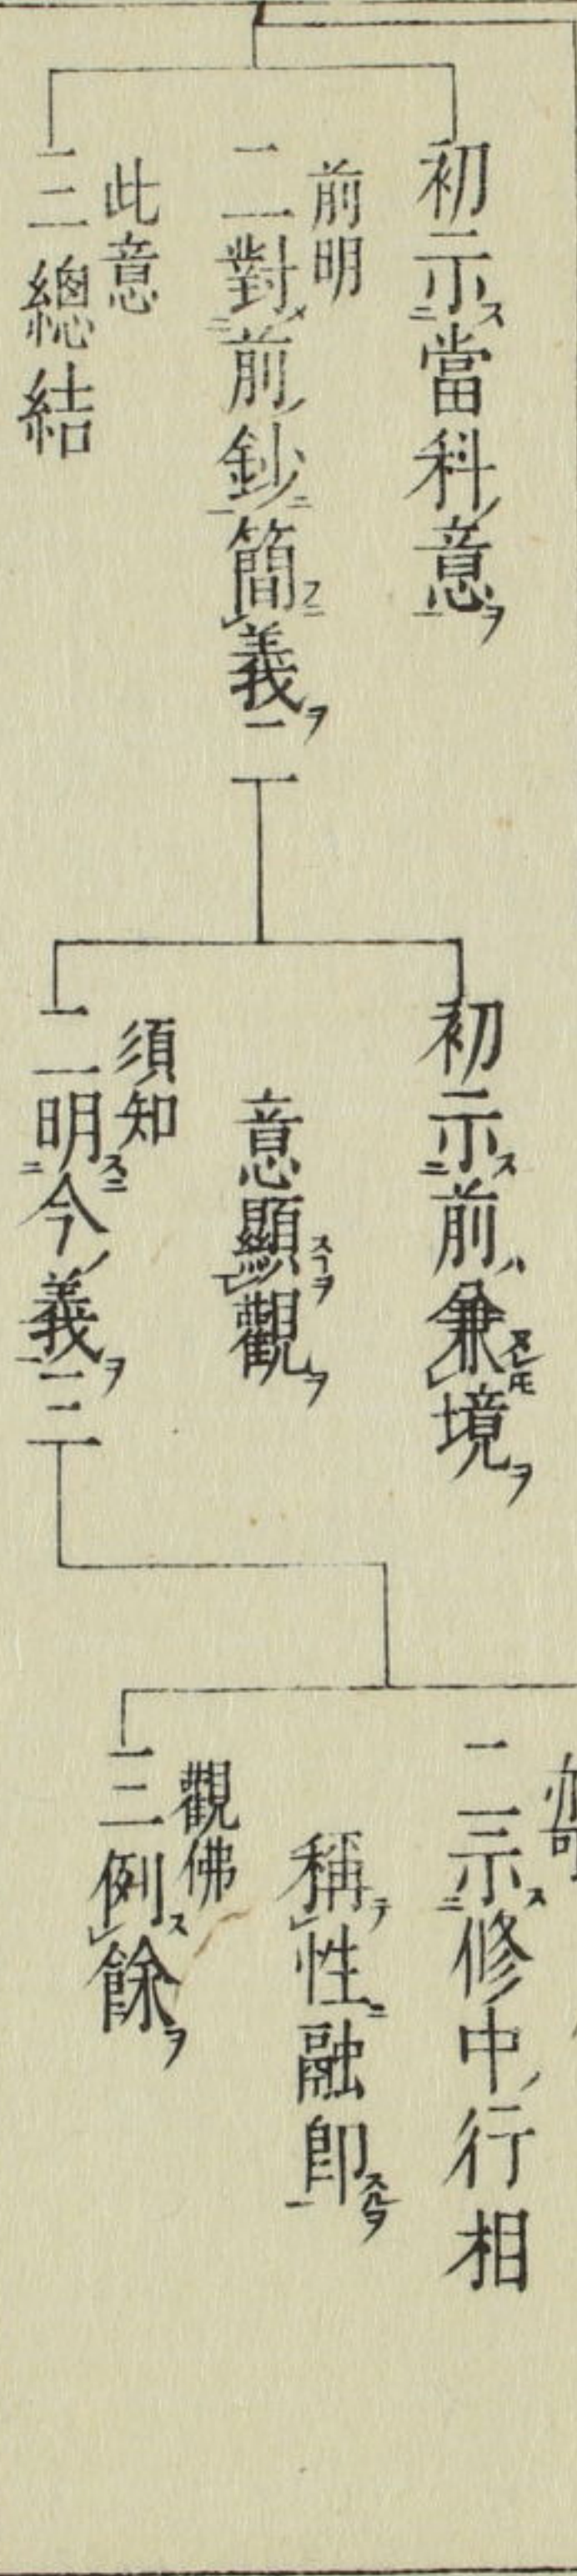 初示當科意
前明
二對前鈔簡義二
此意
三總結
初示前兼境
意顯觀
須知
二明今義三
二示修中行相
稱性融即
觀佛
三例餘